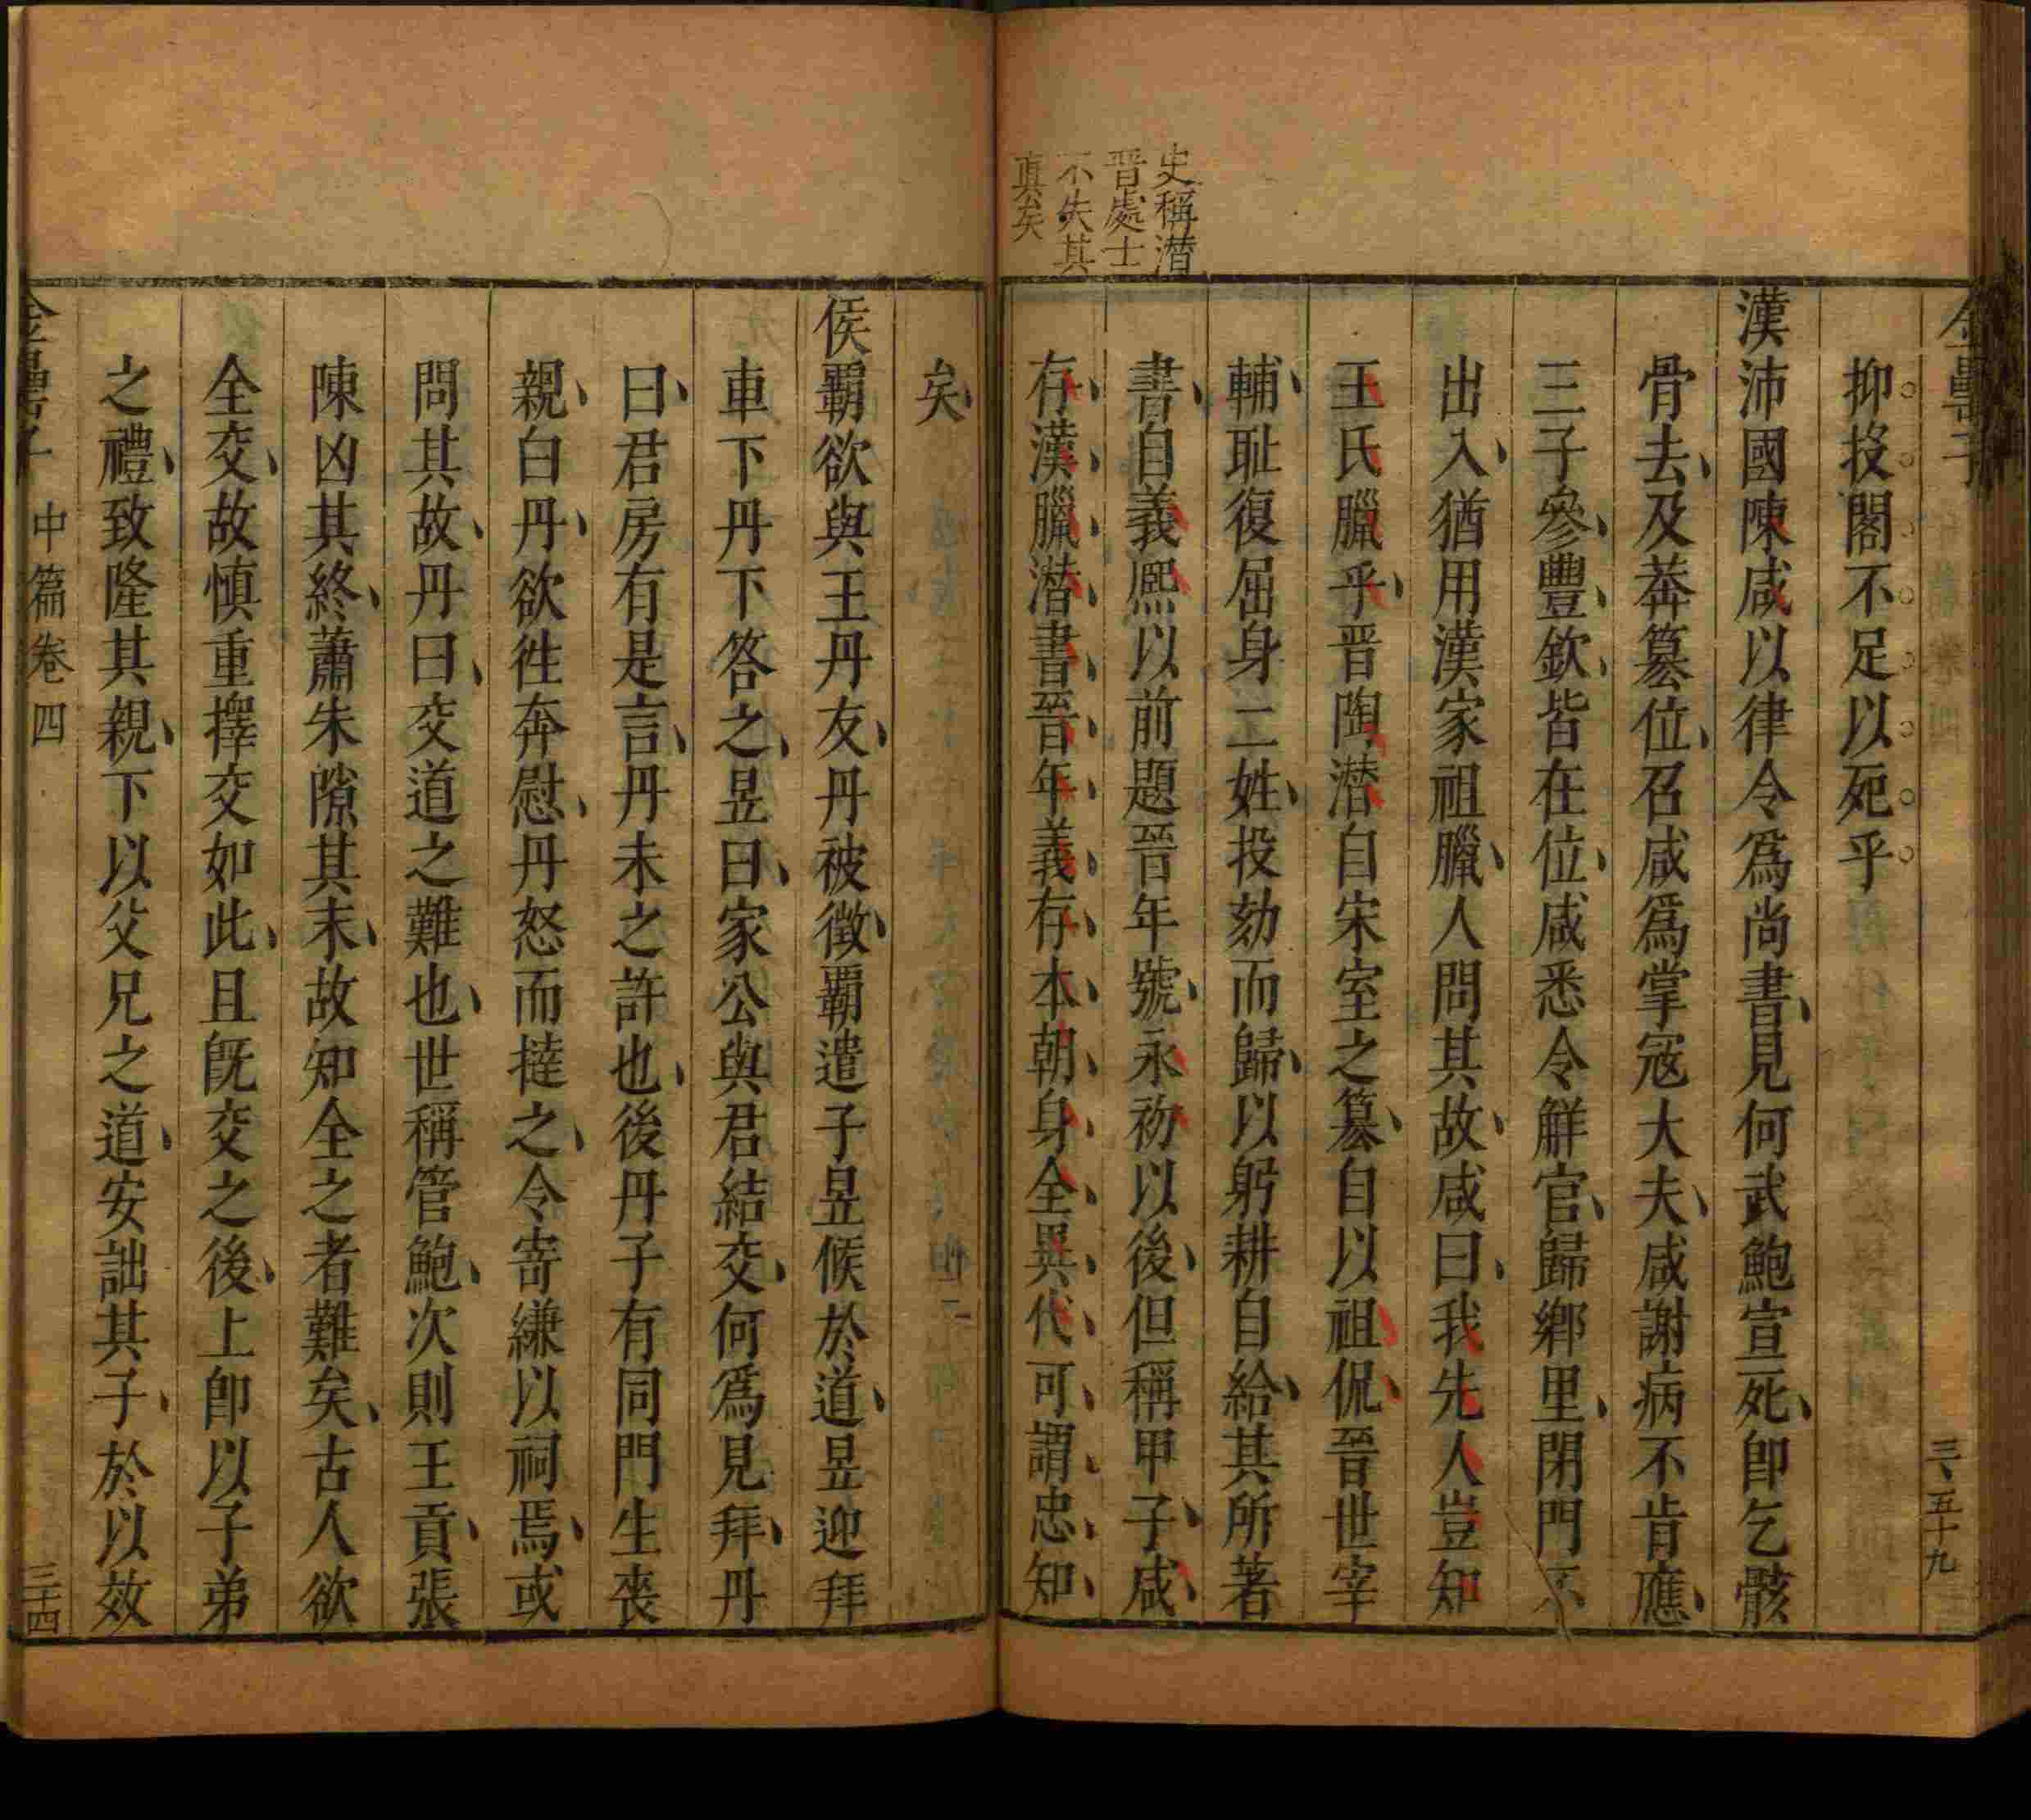 抑投閣不足以死乎
漢沛國陳咸以律令爲尚書見何武鮑宣死卽乞骸
骨去及莽篡位召咸爲掌寇大夫咸謝病不肯應
三子參豐欽皆在位咸悉令觧官歸鄕里閉門不
出入猶用漢家祖臘人問其故咸曰我先人豈知
王氏臘乎晋陶潜自宋室之篡自以祖侃晉世宰
輔耻復屈身二姓投劾而歸以躬耕自給其所著
書自義熈以前題晉年號永初以後但稱甲子咸
存漢臘潜書晉年義存本朝身全異代可謂忠知
史稱潜
晋處士
不失其
真矣
矣
侯覇欲與王丹友丹被徵覇遣子昱候於道昱迎拜
車下丹下答之昱曰家公與君結交何爲見拜丹
曰君房有是言丹未之許也後丹子有同門生喪
親白丹欲徃奔慰丹怒而撻之令寄縑以祠焉或
問其故丹曰交道之難也世稱管鮑次則王貢張
陳凶其終蕭朱隙其末故知全之者難矣古人欲
全交故慎重擇交如此且旣交之後上卽以子弟
之禮致隆其親下以父兄之道安詘其子於以效
中篇卷四
三十四
三、五十九